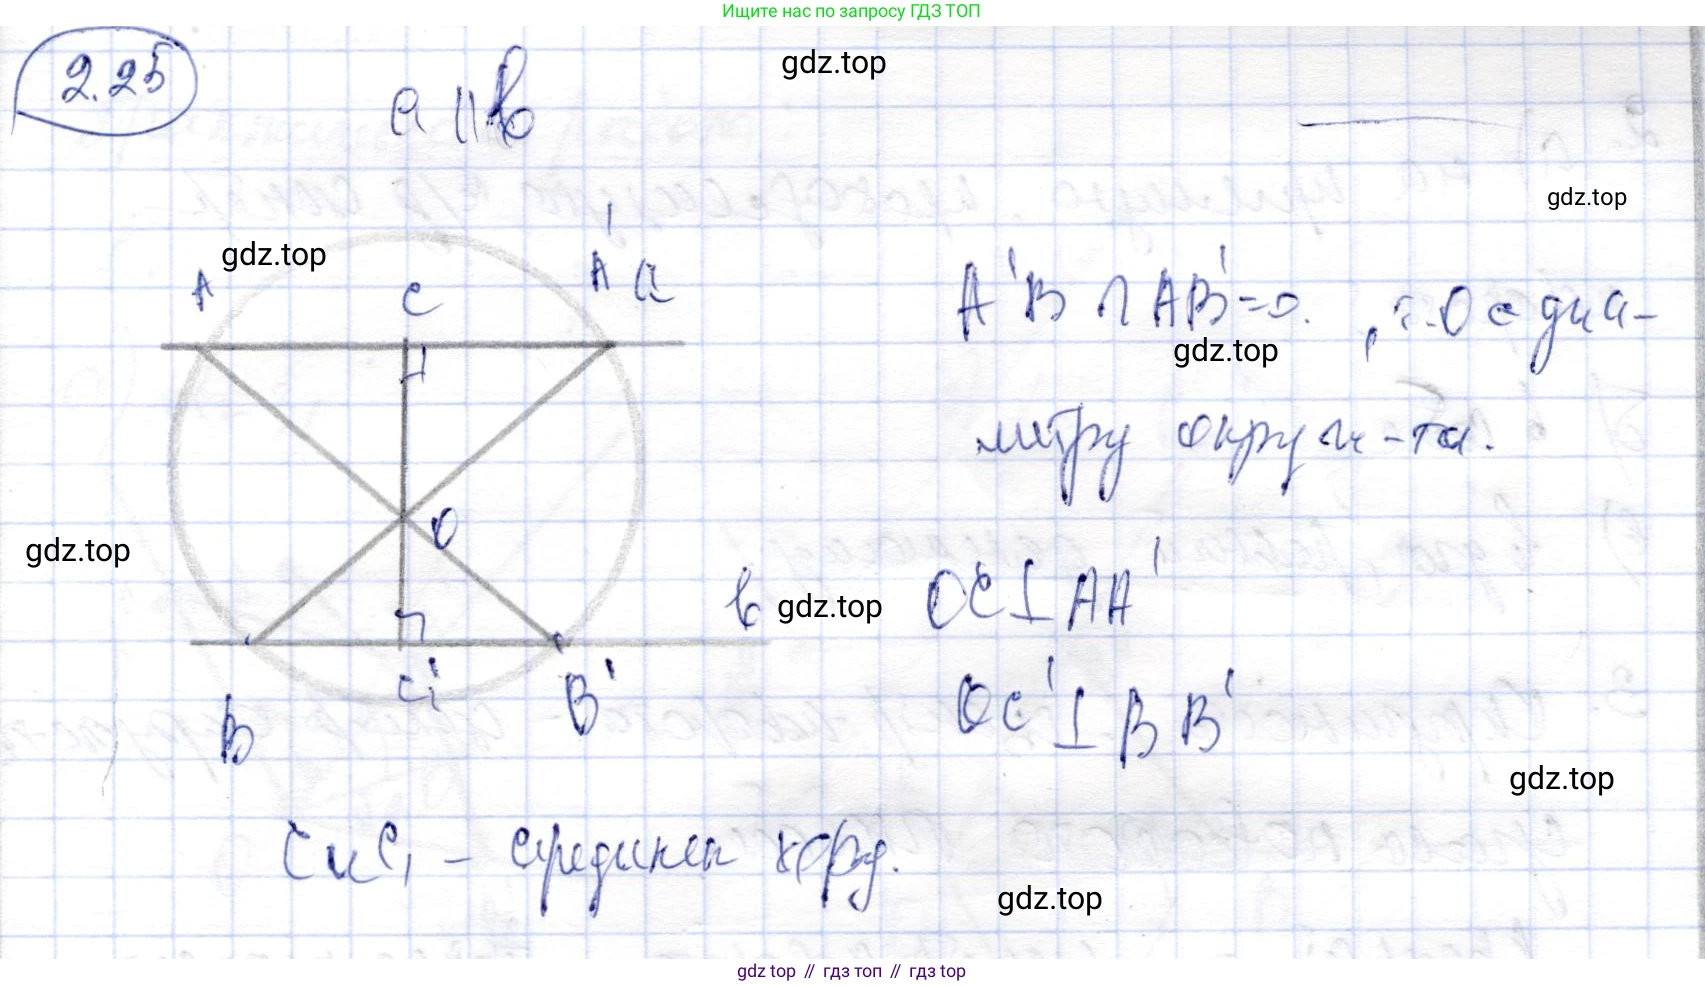 Ищите нас по запросу ГДЗ ТОП
2.25
a || b
gdz.top
gdz.top
gdz.top
A
C
A'
a
A'B ∩ AB' = O. , т. O ∈ диа-
gdz.top
метру окруж-та.
O
gdz.top
b
gdz.top
OC ⊥ AA'
C₁
B'
B
OC' ⊥ BB'
gdz.top
C и C₁ – середины хорд.
gdz.top
gdz.top // гдз топ // гдз top